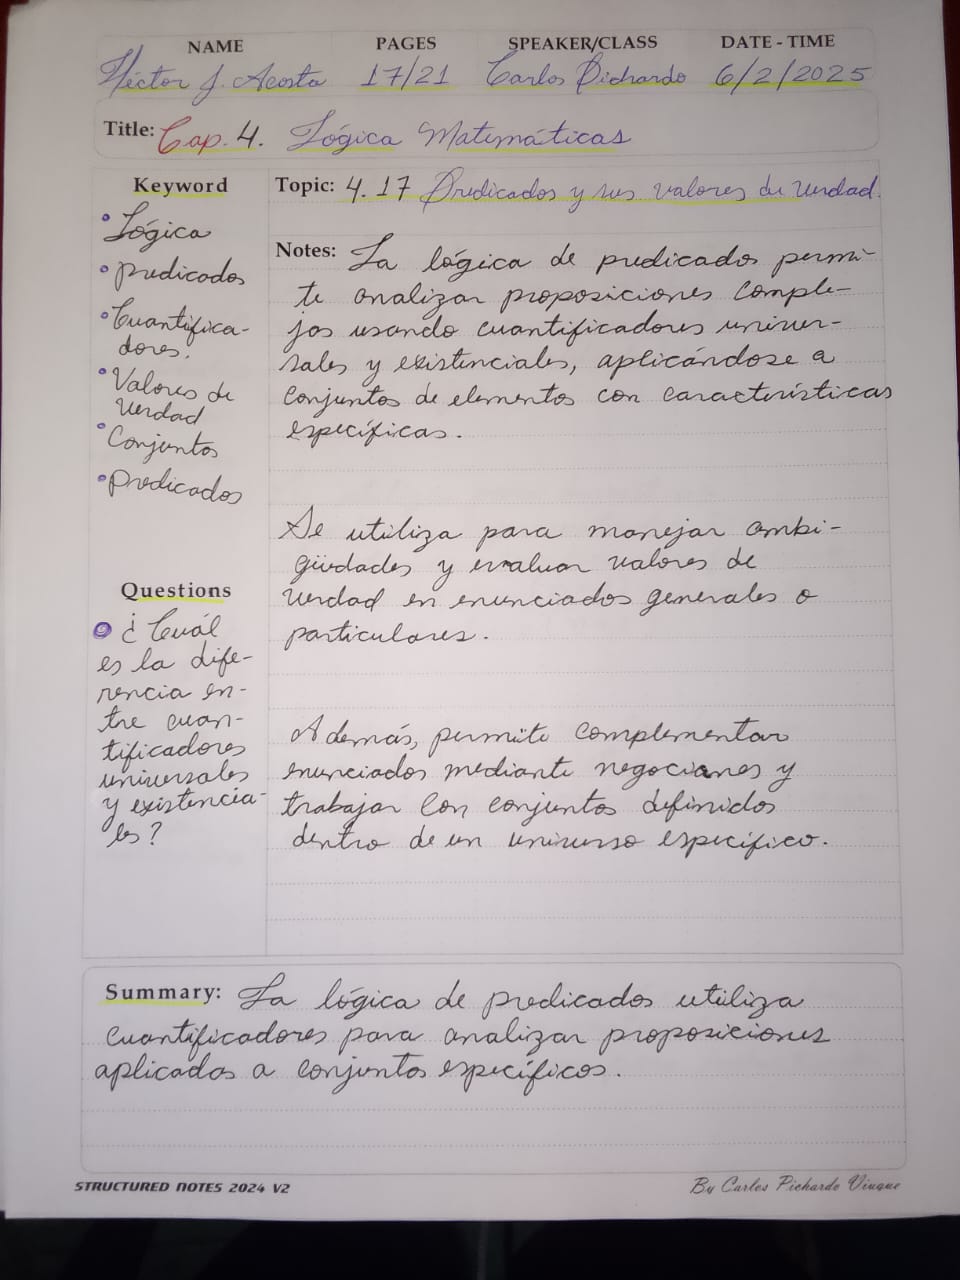 NAME PAGES SPEAKER/CLASS DATE - TIME
Héctor J. Acosta 17/21 Carlos Pichardo 6/2/2025
Title: Cap. 4. Lógica Matemáticas
Keyword
• Lógica
• predicados
• Cuantifica-
dores.
• Valores de
verdad
• Conjuntos
• predicados
Questions
¿Cuál
es la dife-
rencia en-
tre cuan-
tificadores
universales
y existencia-
les?
Topic: 4.17 Predicados y sus valores de verdad.
Notes: La lógica de predicados permi-
te analizar proposiciones comple-
jas usando cuantificadores univer-
sales y existenciales, aplicándose a
conjuntos de elementos con características
específicas.
Se utiliza para manejar ambi-
güedades y evaluar valores de
verdad en enunciados generales o
particulares.
Además, permite complementar
enunciados mediante negaciones y
trabajar con conjuntos definidos
dentro de un universo específico.
Summary: La lógica de predicados utiliza
cuantificadores para analizar proposiciones
aplicadas a conjuntos específicos.
STRUCTURED NOTES 2024 V2 By Carlos Pichardo Viuque